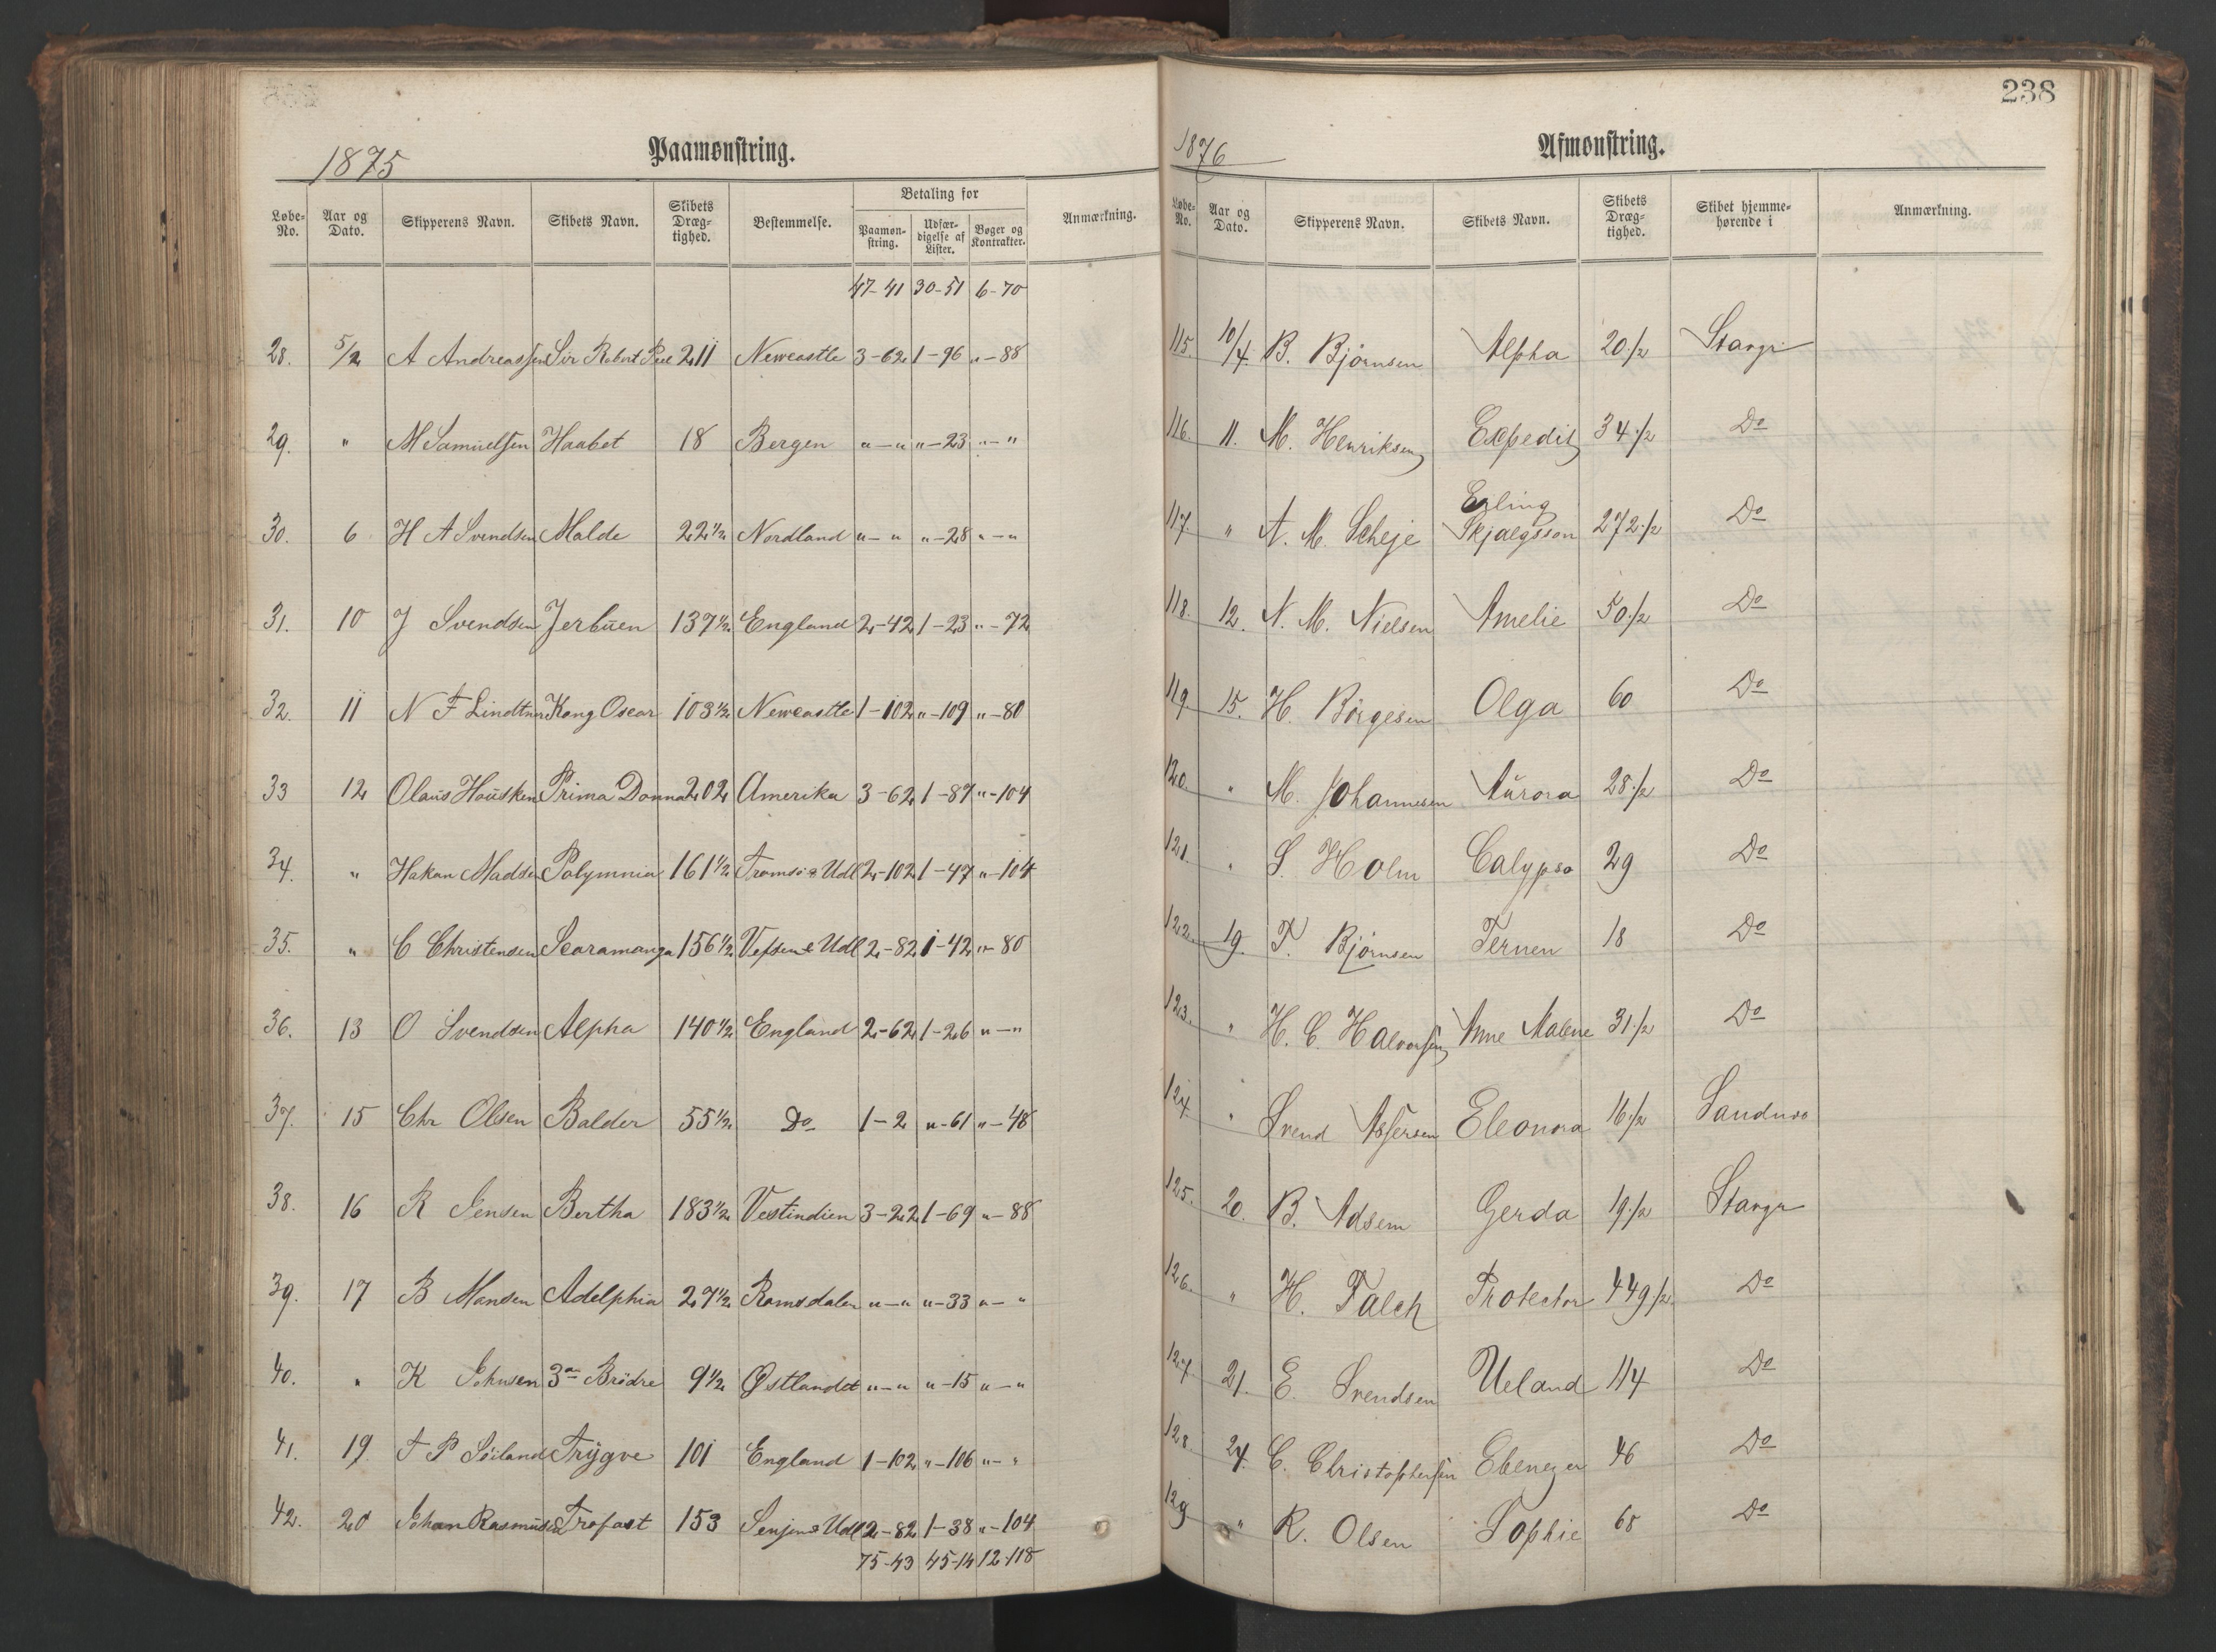 238
1875 Paamønstring.
Løbe-No. Aar og Dato. Skipperens Navn. Skibets Navn. Skibets Dræg-tighed. Bestemmelse. Betaling for Paamøn-string. Udfær-digelse af Lister. Bøger og Kontrakter. Anmærkning.
47-41 30-51 6-70
28. 5/2 A Andreassen Sir Robert Peel 211 Newcastle 3-62 1-96 "-88
29. " M Samuelsen Haabet 18 Bergen "-" "-23 "-"
30. 6 H A Svendsen Malde 22 1/2 Nordland "-" "-28 "-"
31. 10 J Svendsen Jerbuen 137 1/2 England 2-42 1-23 "-72
32. 11 N F Lindtner Kong Oscar 103 1/2 Newcastle 1-102 "-109 "-80
33 12 Olaus Housken Prima Donna 202 Amerika 3-62 1-87 "-104
34. " Hakan Madsen Polymnia 161 1/2 Tromsö & Udl 2-102 1-47 "-104
35. " C Christensen Scaramanga 156 1/2 Vefsen & Udl 2-82 1-42 "-80
36. 13 O Svendsen Alpha 140 1/2 England 2-62 1-26 "-"
37. 15 Chr Olsen Balder 55 1/2 Do 1-2 "-61 "-48
38. 16 R Jensen Bertha 183 1/2 Vestindien 3-22 1-69 "-88
39. 17 B Monsen Adelphia 27 1/2 Romsdalen "-" "-33 "-"
40. " K Johnsen 3de Brödre 9 1/2 Østlandet "-" "-15 "-"
41. 19 T P Söiland Trÿgve 101 England 1-102 "-106 "-"
42. 20 Johan Rasmussen Trofast 153 Senjen & Udl 2-82 1-38 "-104
75-43 45-14 12-118
1876 Afmønstring.
Løbe-No. Aar og Dato. Skipperens Navn. Skibets Navn. Skibets Dræg-tighed. Skibet hjemme-hørende i Anmærkning.
115. 10/4. B. Bjørnsen Alpha 20 1/2 Stavgr
116. 11. M. Henriksen Expedit 34 1/2 Do
117. " A. M. Scheje Erling Skjalgsson 272 1/2 Do
118. 12. N. M. Nielsen Amelie 50 1/2 Do
119 15. H. Börgesen Olga 60 Do
120. " M. Johannesen Aurora 28 1/2 Do
121. " S. Holm Calypso 29 Do
122. 19. T. Bjørnsen Ternen 18 Do
123. " H. C. Halvorsen Anne Malene 31 1/2 Do
124. " Svend Assersen Eleonora 16 1/2 Sandnes
125. 20. B. Adsem Gerda 19 1/2 Stavgr
126. " H. Falch Protector 449 1/2 Do
127. 21. E. Svendsen Ueland 114 Do
128. 24. C. Christophersen Ebenezer 46 Do
129 " R. Olsen Sophie 68 Do